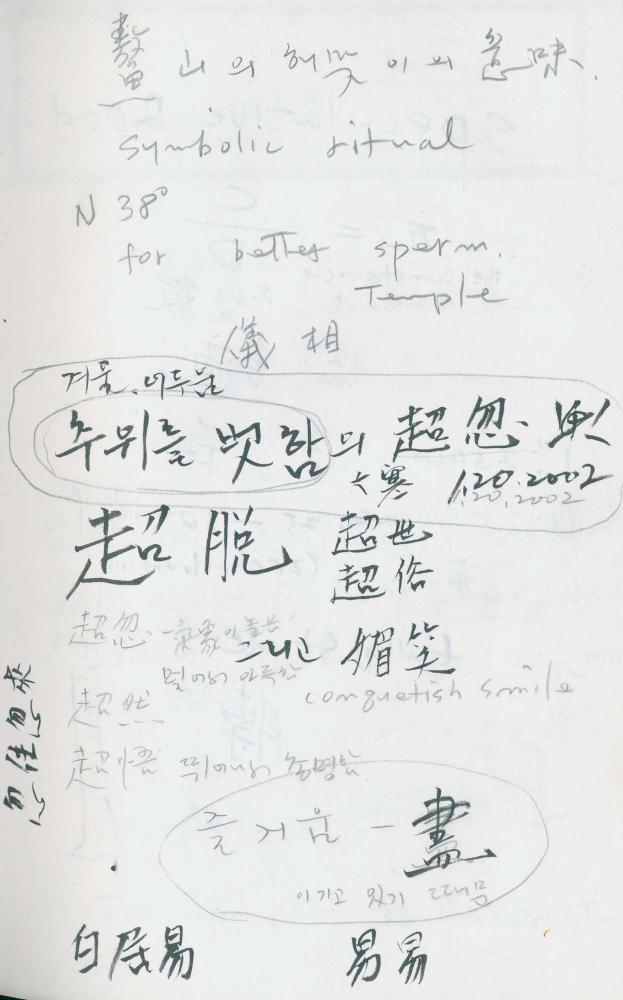 山의 해맞이의 意味.
symbolic ritual
N 38°
for better sperm.
Temple
儀相
겨울, 어두움
추위를 벗함의 超忽
大寒 1.20.2002
1.20.2002
超脫 超世
超俗
超忽 높은
그리고 媚笑
멀어서 아득한
conquetish smile
超然
超悟 뛰어나서 총명함
忽往忽來
즐거움 - 畫
이기고 있기 때문
白居易 易易